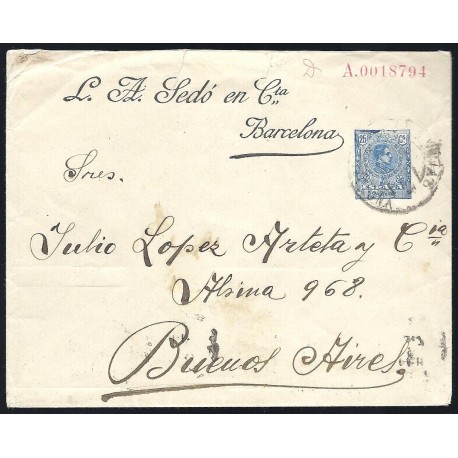 A.0018794
L. A. Sedó en Cta
Barcelona
25 Cs
ESPAÑA
Sres.
Julio Lopez Arteta y Cia
Alsina 968.
Buenos Aires